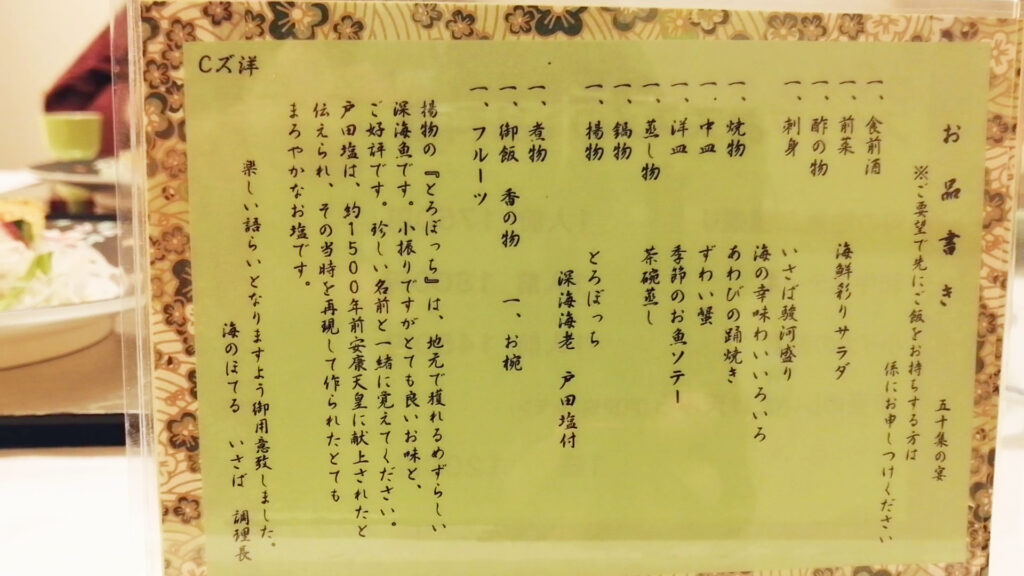 お品書き
五十集の宴
※ご要望で先にご飯をお持ちする方は
係にお申しつけください
一、食前酒
一、前菜 海鮮彩りサラダ
一、酢の物
一、刺身 いさば駿河盛り
海の幸味わいいろいろ
一、焼物 あわびの踊焼き
一、中皿 ずわい蟹
一、洋皿 季節のお魚ソテー
一、蒸し物 茶碗蒸し
一、鍋物
一、揚物 とろぼっち
深海海老 戸田塩付
一、煮物
一、御飯 香の物 一、お椀
一、フルーツ
揚物の『とろぼっち』は、地元で獲れるめずらしい
深海魚です。小振りですがとても良いお味と、
ご好評です。珍しい名前と一緒に覚えてください。
戸田塩は、約1500年前安康天皇に献上されたと
伝えられ、その当時を再現して作られたとても
まろやかなお塩です。
楽しい語らいとなりますよう御用意致しました。
海のほてる いさば 調理長
Cズ洋